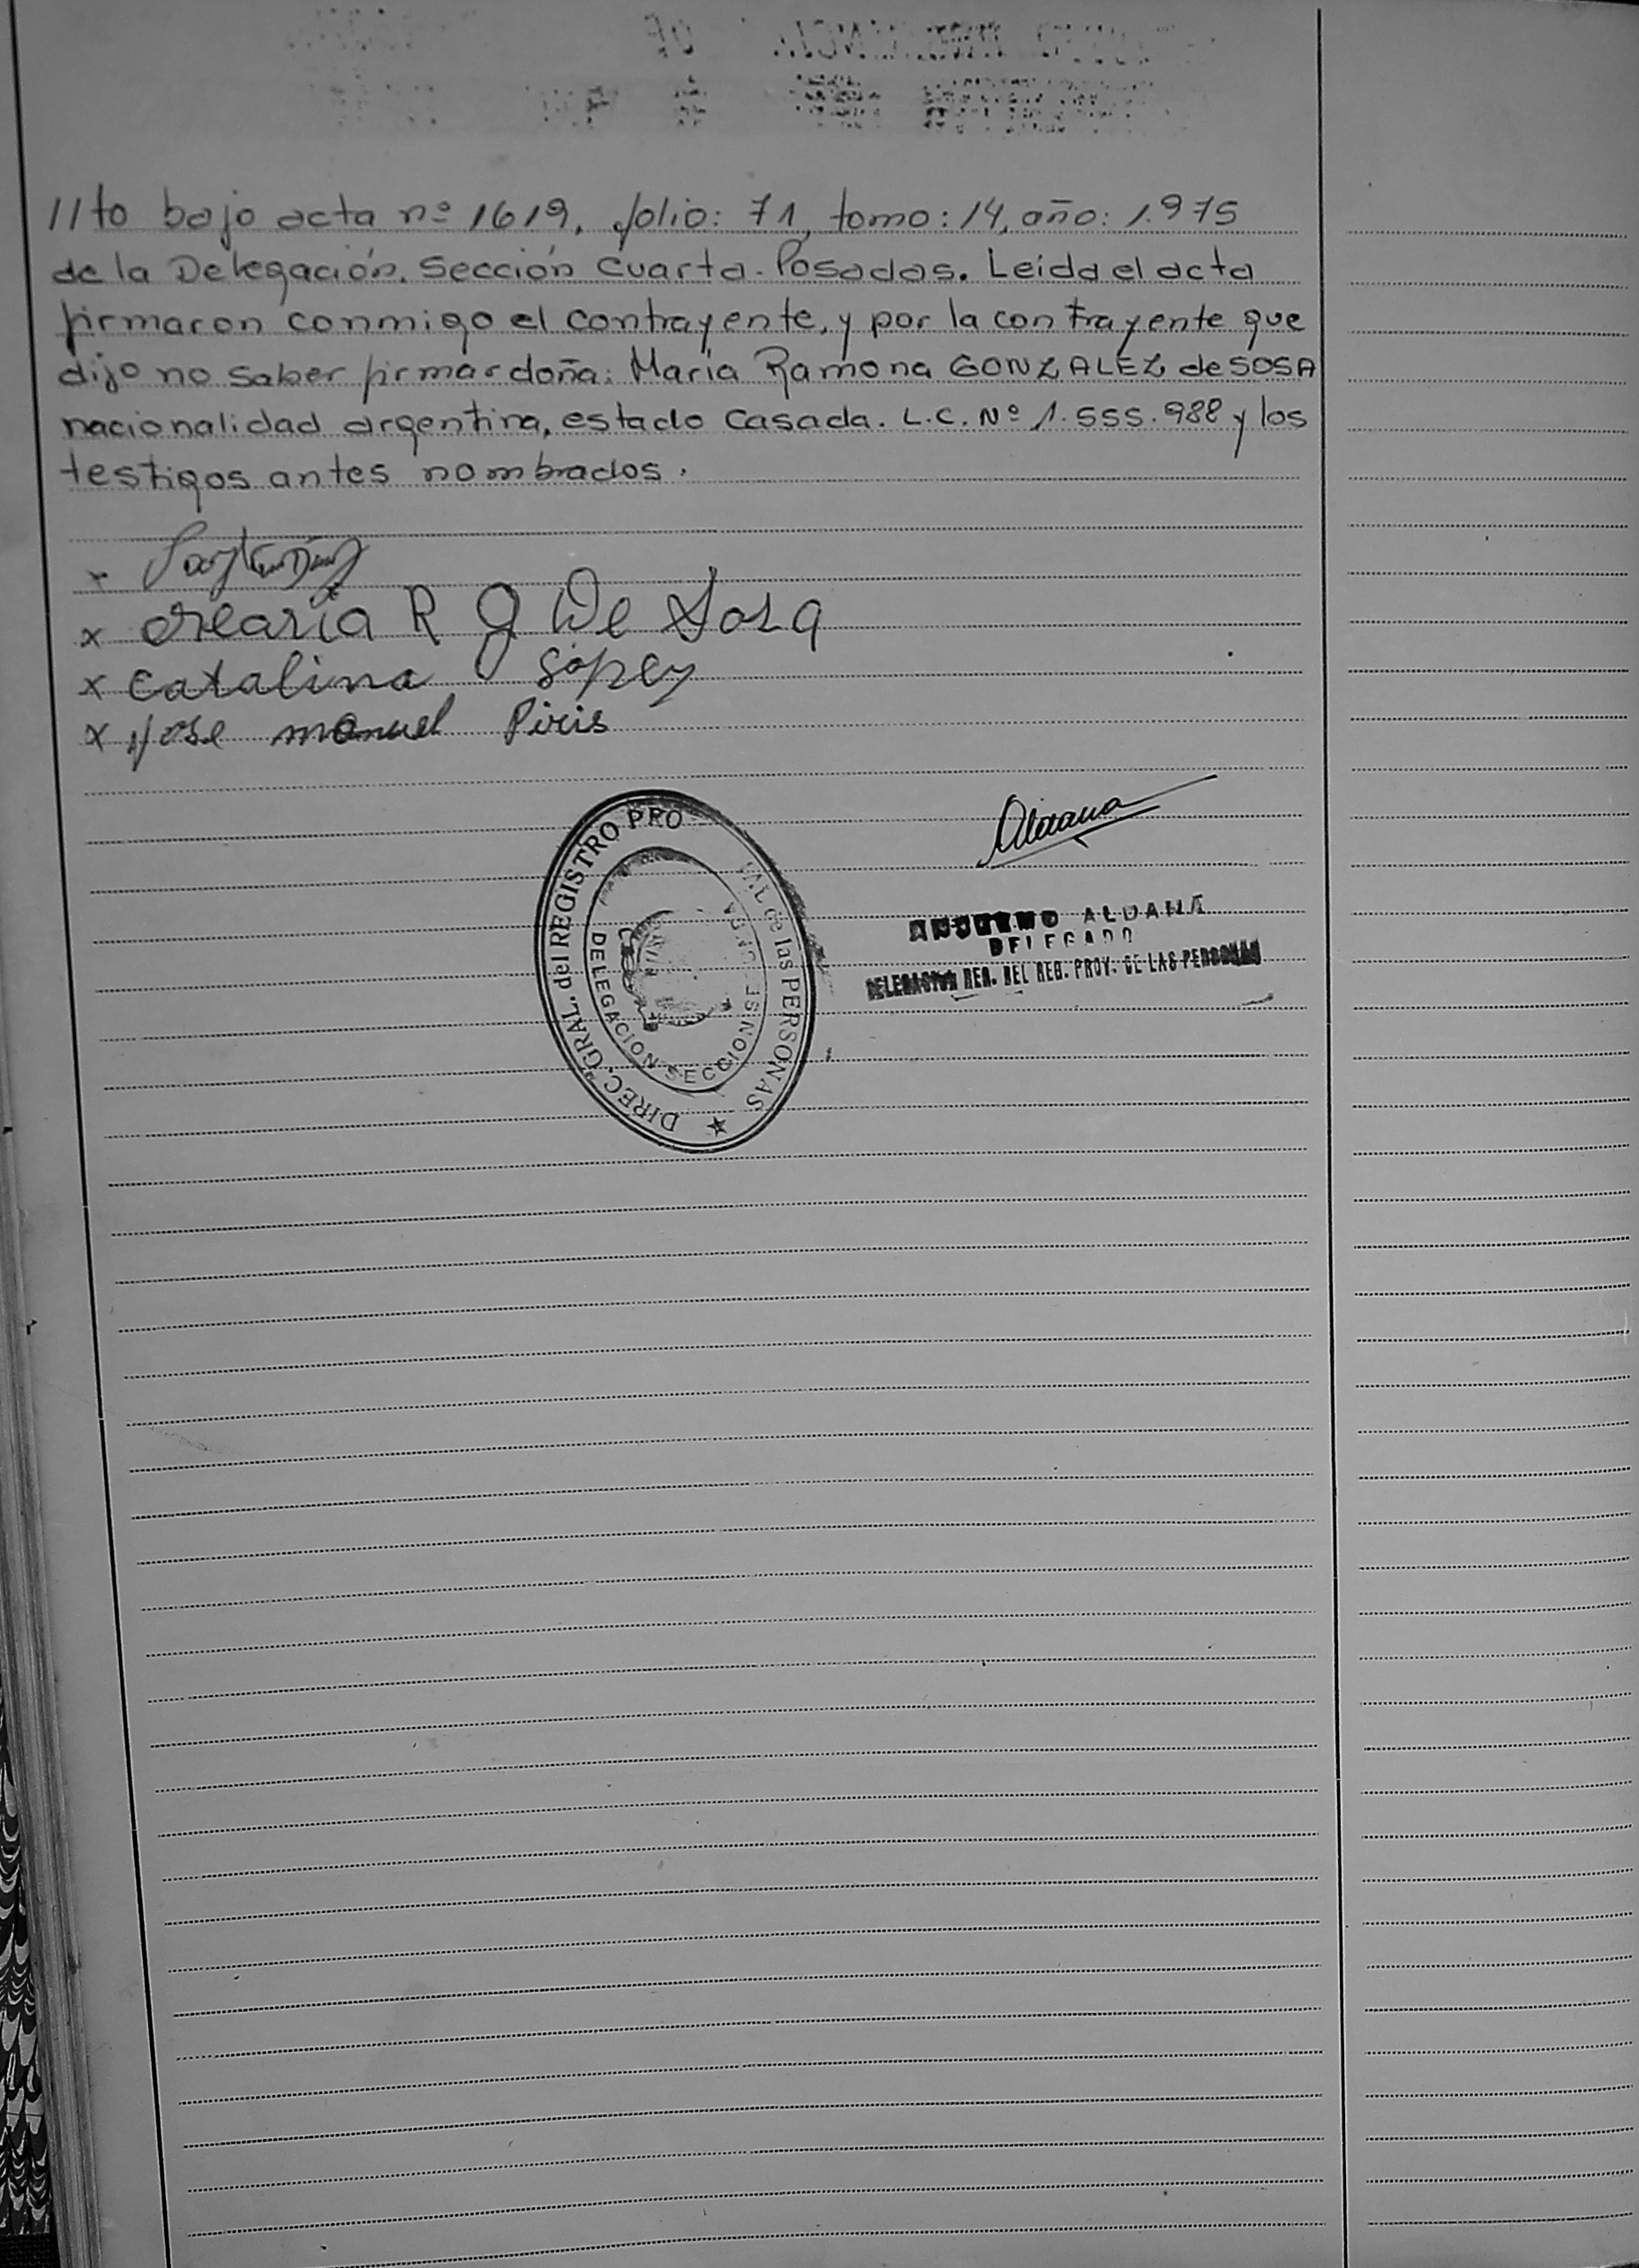 //to bajo acta nº 1619, folio: 71, tomo: 14, año: 1.975
de la Delegación. Sección Cuarta - Posadas. Leída el acta
firmaron conmigo el contrayente, y por la contrayente que
dijo no saber firmar doña: María Ramona GONZALEZ de SOSA
nacionalidad argentina, estado Casada. L.C. Nº 1.555.988 y los
testigos antes nombrados.
x
x Maria R G De Sosa
x Catalina Lopez
x Jose manuel Piris
Aldana
DIREC. GRAL. del REGISTRO PRO de las PERSONAS
DELEGACION SECCION SEGUNDA
ALDANA
DELEGADO
DELEGACION REG. DEL REG. PROV. DE LAS PERSONAS